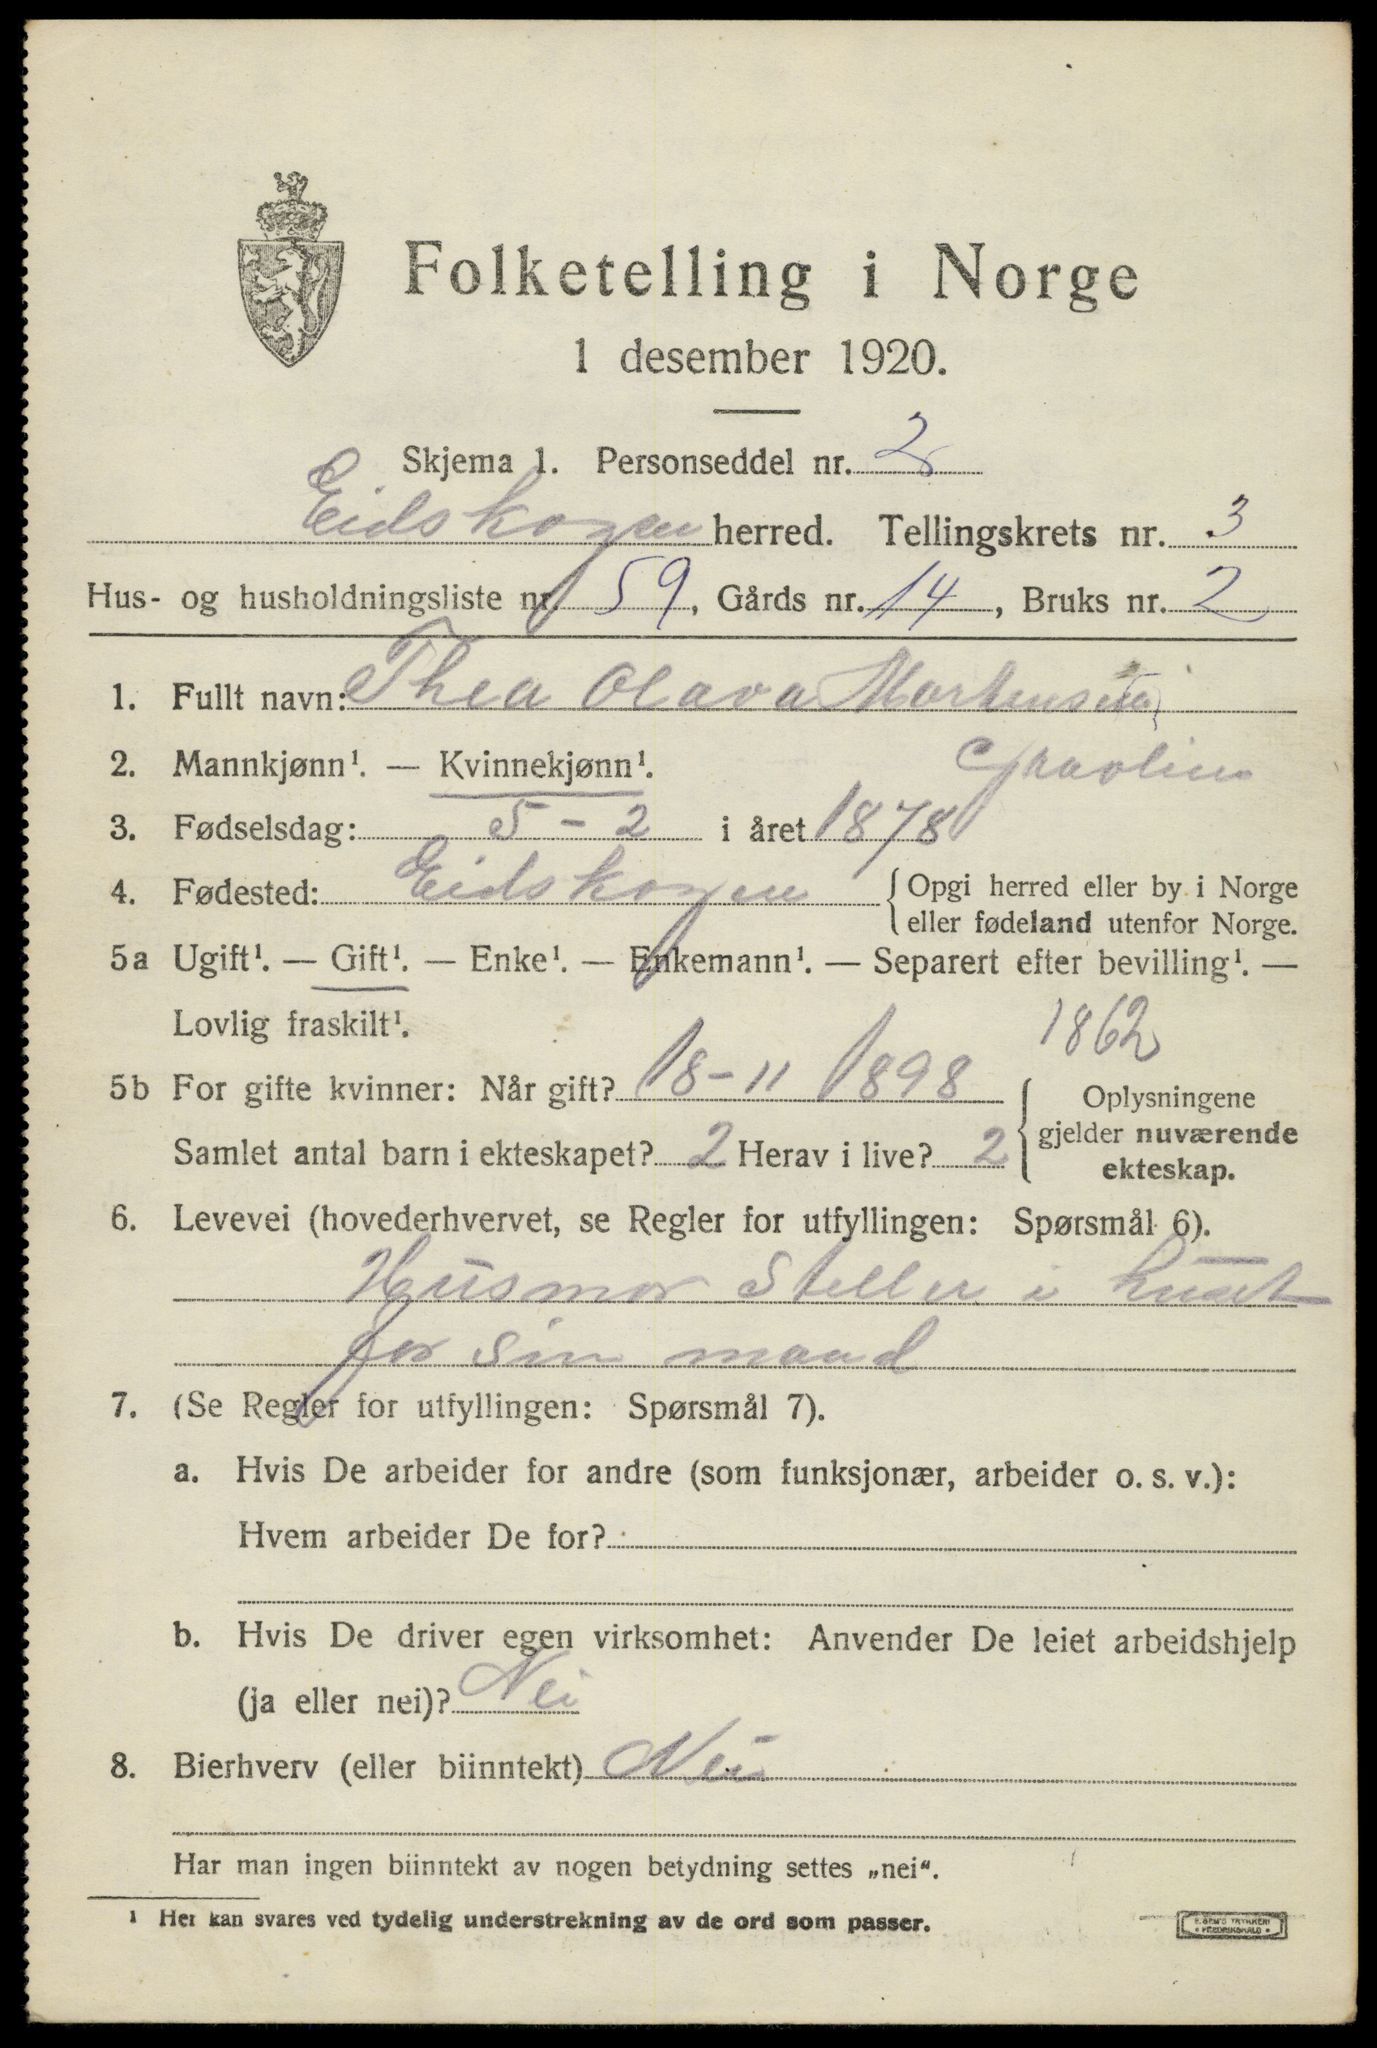 Folketelling i Norge
1 desember 1920.
Skjema 1. Personseddel nr. 2
Eidskogen herred. Tellingskrets nr. 3
Hus- og husholdningsliste nr. 59, Gårds nr. 14, Bruks nr. 2
1. Fullt navn: Thea Olava Mortensen
2. Mannkjønn¹. — Kvinnekjønn¹.
3. Fødselsdag: 5-2 i året 1878
4. Fødested: Eidskogen { Opgi herred eller by i Norge
eller fødeland utenfor Norge.
5a Ugift¹. — Gift¹. — Enke¹. — Enkemann¹. — Separert efter bevilling¹. —
Lovlig fraskilt¹.
1862
5b For gifte kvinner: Når gift? 18-11 1898
Samlet antal barn i ekteskapet? 2 Herav i live? 2
{ Oplysningene
gjelder nuværende
ekteskap.
6. Levevei (hovederhvervet, se Regler for utfyllingen: Spørsmål 6).
Husmor Steller i huset
for sin mand
7. (Se Regler for utfyllingen: Spørsmål 7).
a. Hvis De arbeider for andre (som funksjonær, arbeider o. s. v.):
Hvem arbeider De for?
b. Hvis De driver egen virksomhet: Anvender De leiet arbeidshjelp
(ja eller nei)? Nei
8. Bierhverv (eller biinntekt) Nei
Har man ingen biinntekt av nogen betydning settes „nei“.
¹ Her kan svares ved tydelig understrekning av de ord som passer.
E. SEM'S TRYKKERI
• FREDRIKSHALD •